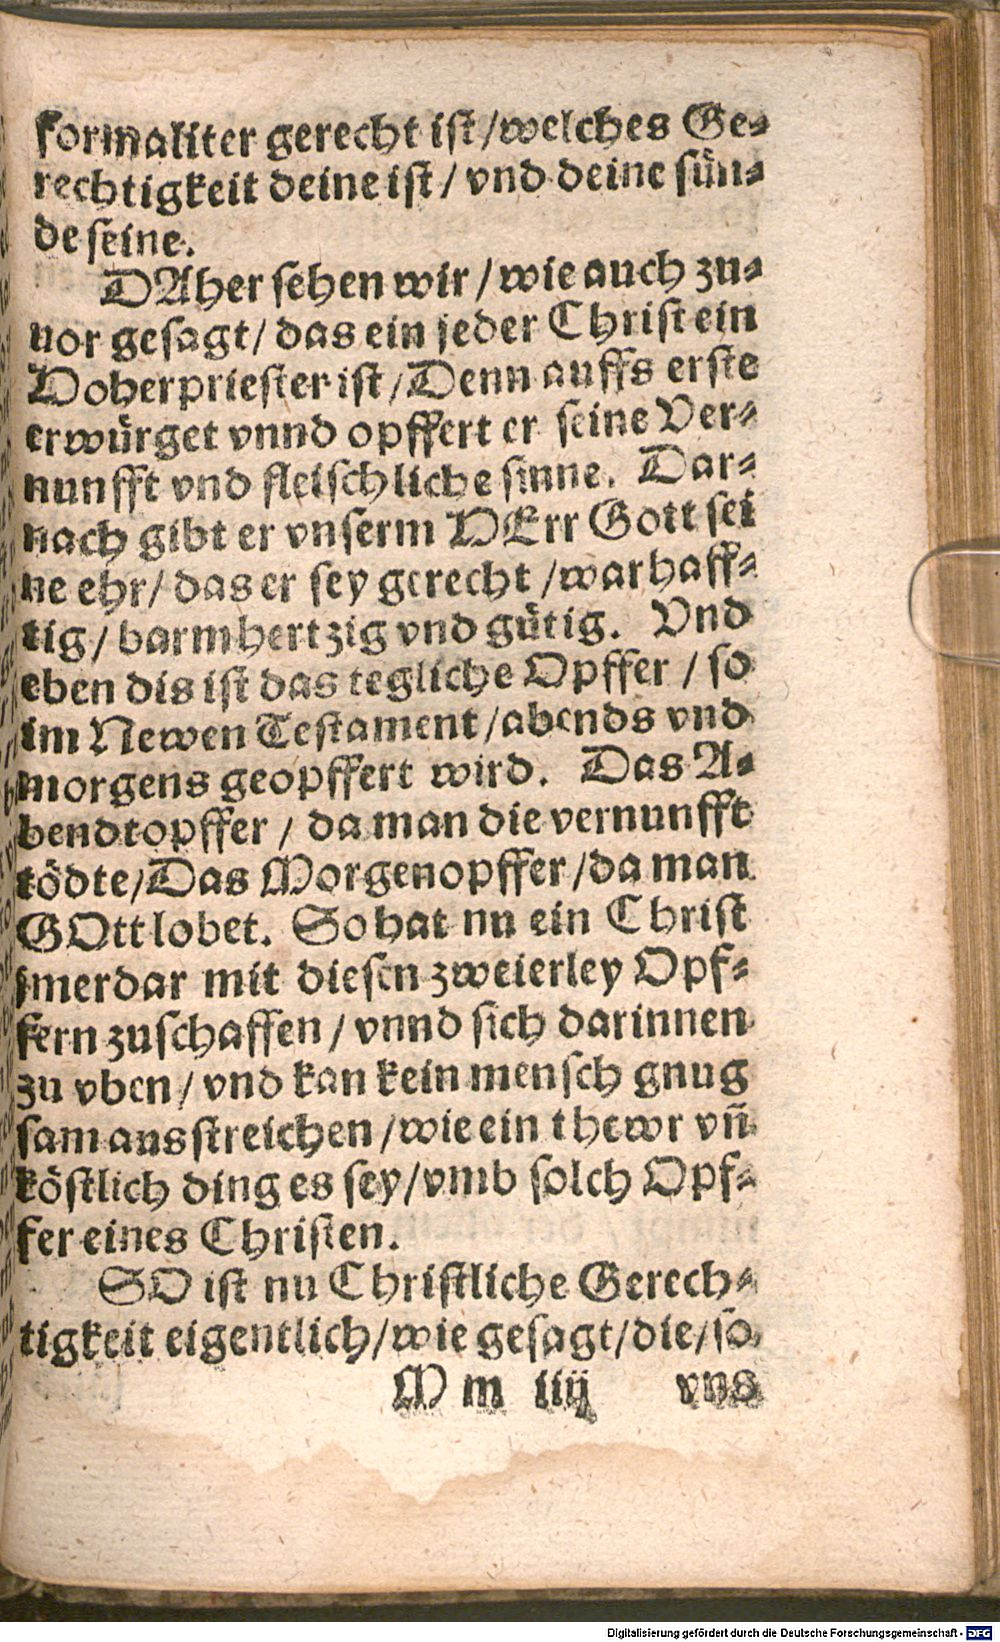 formaliter gerecht ist/welches Ge⸗
rechtigkeit deine ist/ vnd deine sün⸗
de seine.
DAher sehen wir/ wie auch zu⸗
uor gesagt/ das ein jeder Christ ein
Hoherpriester ist/ Denn auffs erste
erwürget vnnd opffert er seine Ver⸗
nunfft vnd fleischliche sinne. Dar⸗
nach gibt er vnserm HErr Gott sei
ne ehr/ das er sey gerecht/warhaff⸗
tig/ barmhertzig vnd gütig. Vnd
eben dis ist das tegliche Opffer/ so
im Newen Testament/abends vnd
morgens geopffert wird. Das A⸗
bendtopffer/ da man die vernunfft
tödte/Das Morgenopffer/da man
GOtt lobet. So hat nu ein Christ
jmerdar mit diesen zweierley Opf⸗
fern zuschaffen/ vnnd sich darinnen
zu vben/ vnd kan kein mensch gnug
sam ausstreichen/wie ein thewr vñ
köstlich ding es sey/vmb solch Opf⸗
fer eines Christen.
SO ist nu Christliche Gerech⸗
tigkeit eigentlich/wie gesagt/die/so
M m iiij vns
Digitalisierung gefördert durch die Deutsche Forschungsgemeinschaft - DFG